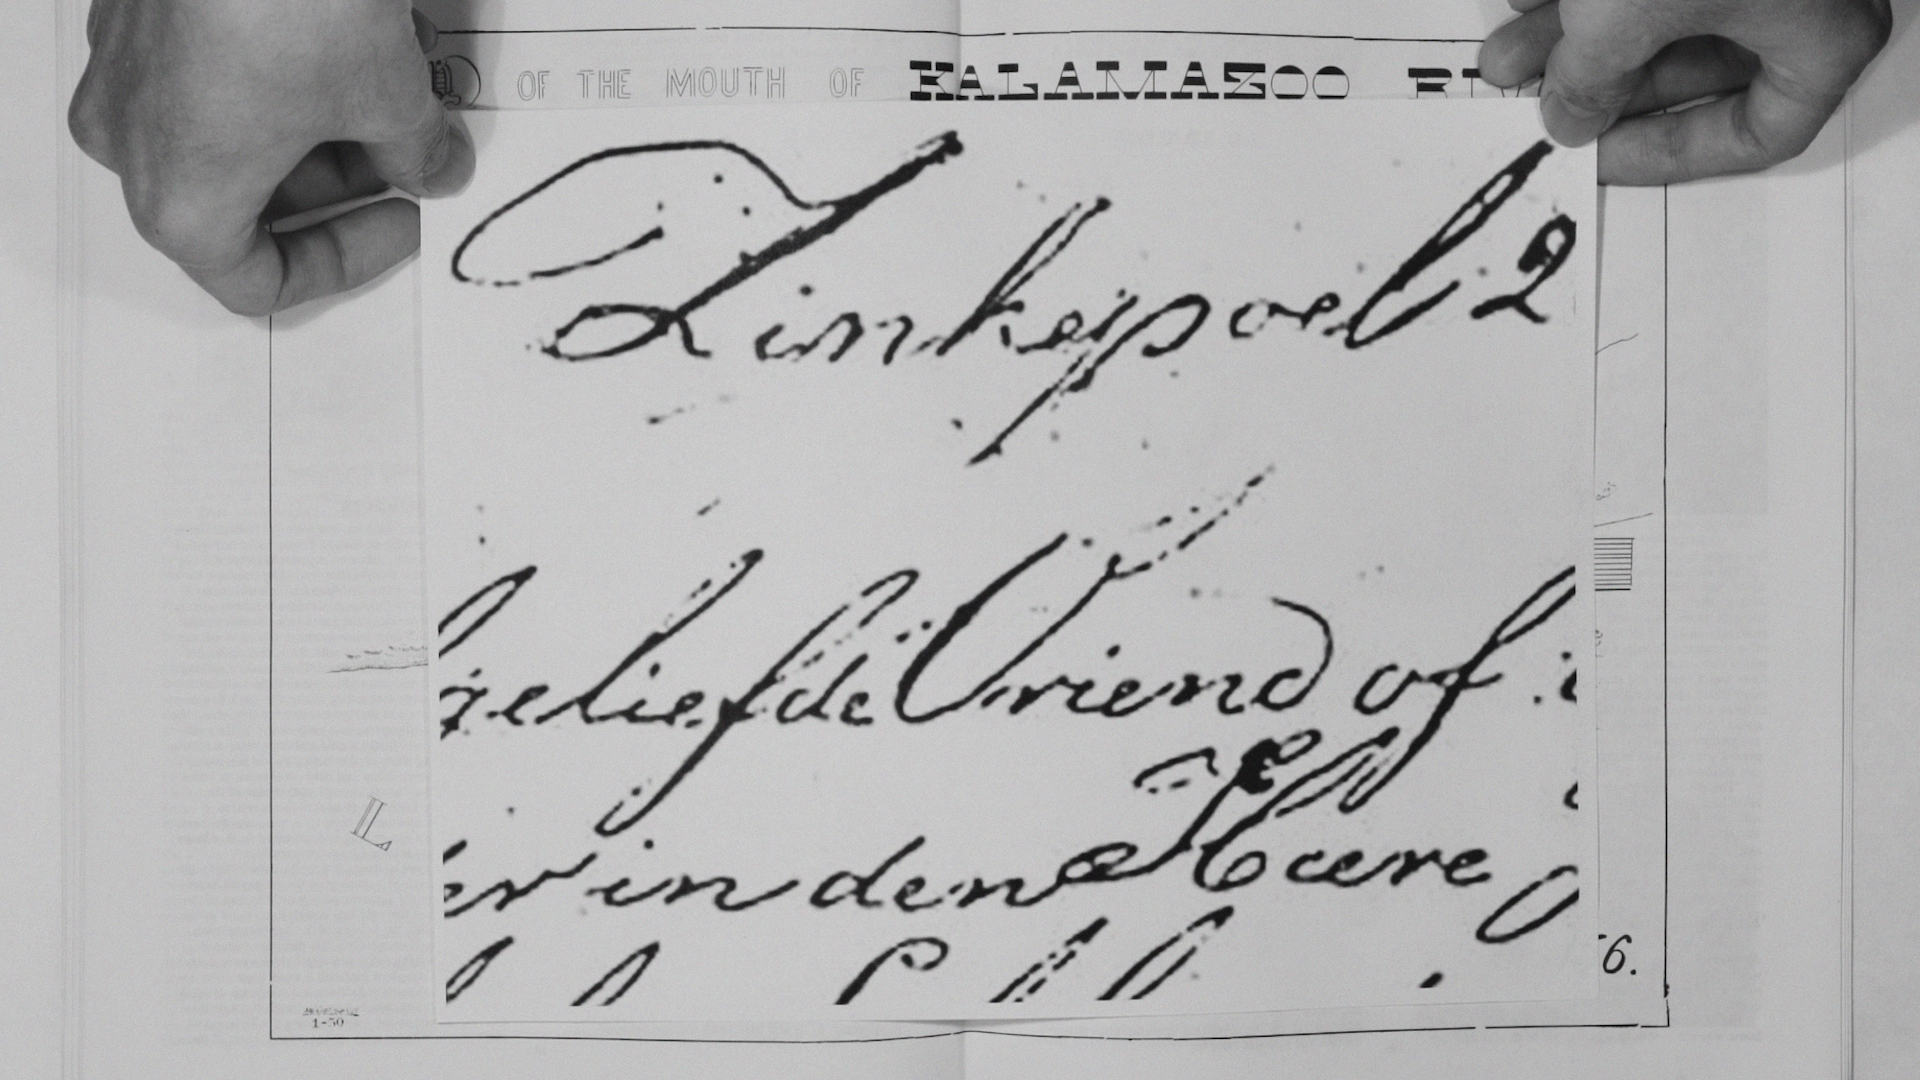 OF THE MOUTH OF KALAMAZOO
Linkepoel 2
geliefde Vriend of
er in den Heere
L
6.
1-50